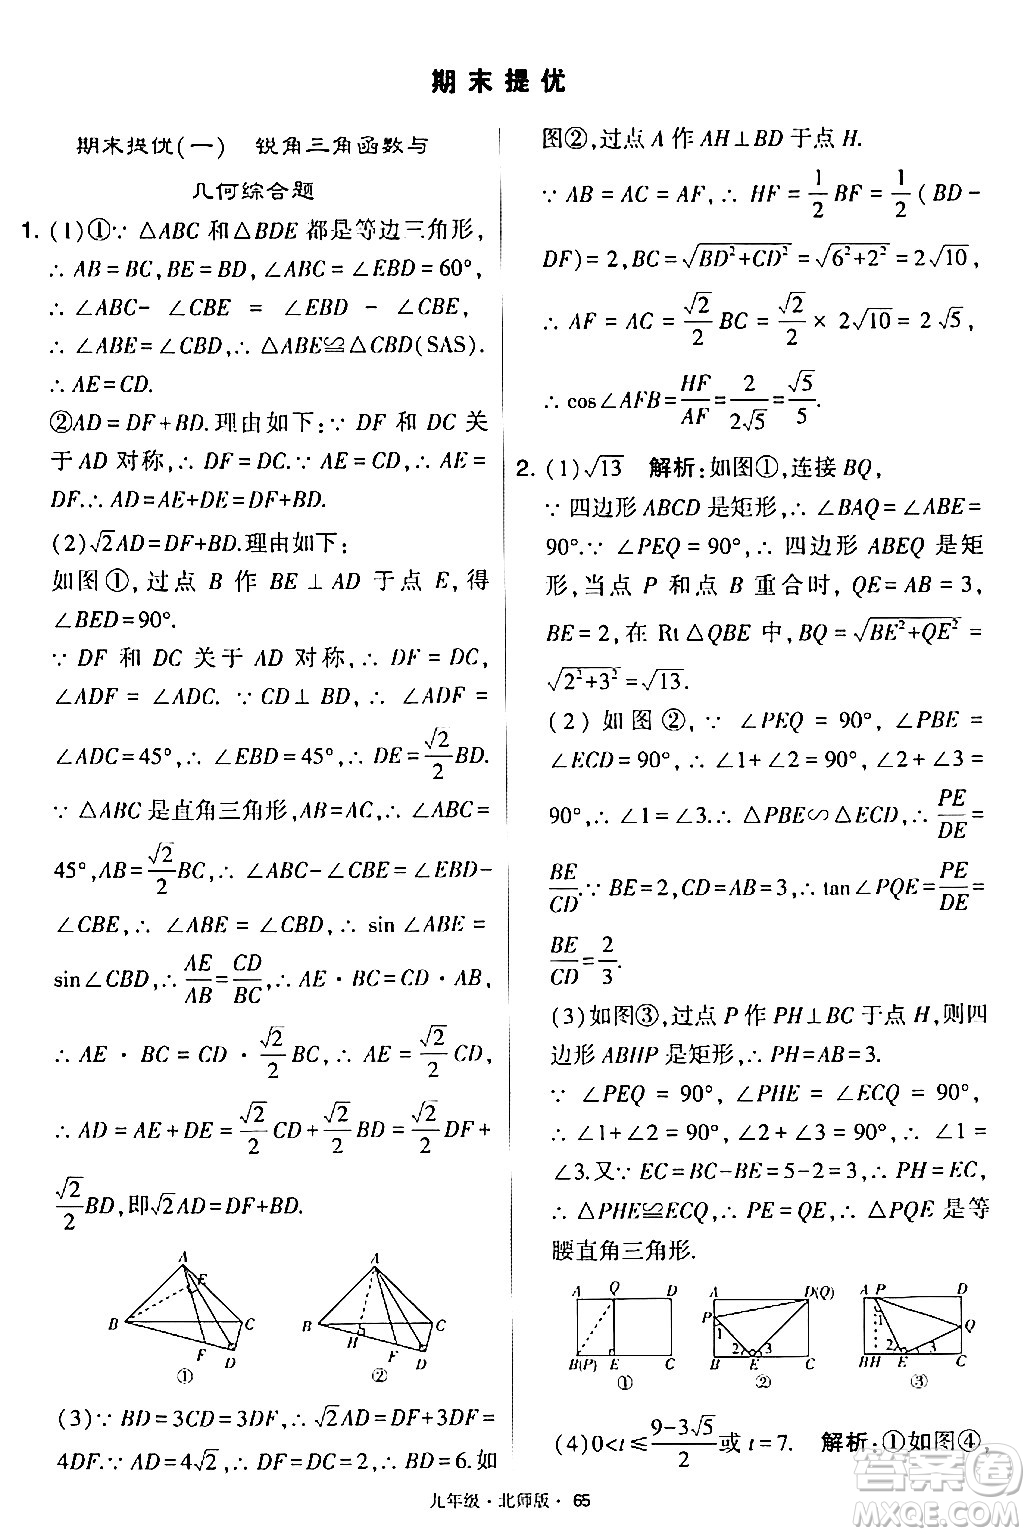 期末提优
期末提优(一) 锐角三角函数与
几何综合题
1. (1)①∵ △ABC 和△BDE 都是等边三角形,
∴ AB=BC,BE=BD,∠ABC=∠EBD=60°,
∴ ∠ABC- ∠CBE = ∠EBD - ∠CBE,
∴ ∠ABE=∠CBD,∴ △ABE≌△CBD(SAS).
∴ AE=CD.
②AD=DF+BD.理由如下:∵ DF 和 DC 关
于 AD 对称,∴ DF=DC.∵ AE=CD,∴ AE=
DF.∴ AD=AE+DE=DF+BD.
(2)√2AD=DF+BD.理由如下:
如图①,过点 B 作 BE⊥AD 于点 E,得
∠BED=90°.
∵ DF 和 DC 关于 AD 对称,∴ DF=DC,
∠ADF = ∠ADC. ∵ CD⊥BD, ∴ ∠ADF =
∠ADC=45°,∴ ∠EBD=45°,∴ DE=√2/2 BD.
∵ △ABC 是直角三角形,AB=AC,∴ ∠ABC=
45°,AB=√2/2 BC,∴ ∠ABC-∠CBE=∠EBD-
∠CBE,∴ ∠ABE = ∠CBD,∴ sin∠ABE =
sin∠CBD,∴ AE/AB=CD/BC,∴ AE·BC=CD·AB,
∴ AE·BC=CD·√2/2 BC,∴ AE=√2/2 CD.
∴ AD=AE+DE=√2/2 CD+√2/2 BD=√2/2 DF+
√2/2 BD,即√2AD=DF+BD.
A
E
B
C
F
D
①
A
B
C
H
F
D
②
(3)∵ BD=3CD=3DF,∴ √2AD=DF+BD=
4DF=4√2,∴ DF=DC=√2,∴ BD=6.如
图②,过点 A 作 AH⊥BD 于点 H.
∵ AB=AC=AF,∴ HF=1/2 BF=1/2(BD-
DF)=2,BC=√(BD²+CD²)=√(6²+2²)=2√10,
∴ AF=AC=√2/2 BC=√2/2×2√10=2√5,
∴ cos∠AFB=HF/AF=2/2√5=√5/5.
2. (1)√13 解析:如图①,连接 BQ,
∵ 四边形 ABCD 是矩形,∴ ∠BAQ=∠ABE=
90°.∵ ∠PEQ=90°,∴ 四边形 ABEQ 是矩
形,当点 P 和点 B 重合时,QE=AB=3,
BE=2,在 Rt△QBE 中,BQ=√(BE²+QE²)=
√(2²+3²)=√13.
(2) 如图②,∵ ∠PEQ = 90°,∠PBE =
∠ECD=90°,∴ ∠1+∠2=90°,∠2+∠3=
90°,∴ ∠1=∠3.∴ △PBE∽△ECD,∴ PE/DE=
BE/CD.∵ BE=2,CD=AB=3,∴ tan∠PQE=PE/DE=
BE/CD=2/3.
(3)如图③,过点 P 作 PH⊥BC 于点 H,则四
边形 ABHP 是矩形,∴ PH=AB=3.
∵ ∠PEQ = 90°,∠PHE = ∠ECQ = 90°,
∴ ∠1+∠2=90°,∠2+∠3=90°,∴ ∠1=
∠3.又∵ EC=BC-BE=5-2=3,∴ PH=EC,
∴ △PHE≌△ECQ,∴ PE=QE,∴ △PQE 是等
腰直角三角形.
A Q D
B(P) E C
①
A D(Q)
P
1
2 3
B E C
②
A P D
1
Q
2 3
B H E C
③
(4)0<t≤(9-3√5)/2或 t=7. 解析:①如图④,
九年级·北师版·65
答案圈
MXQE.COM